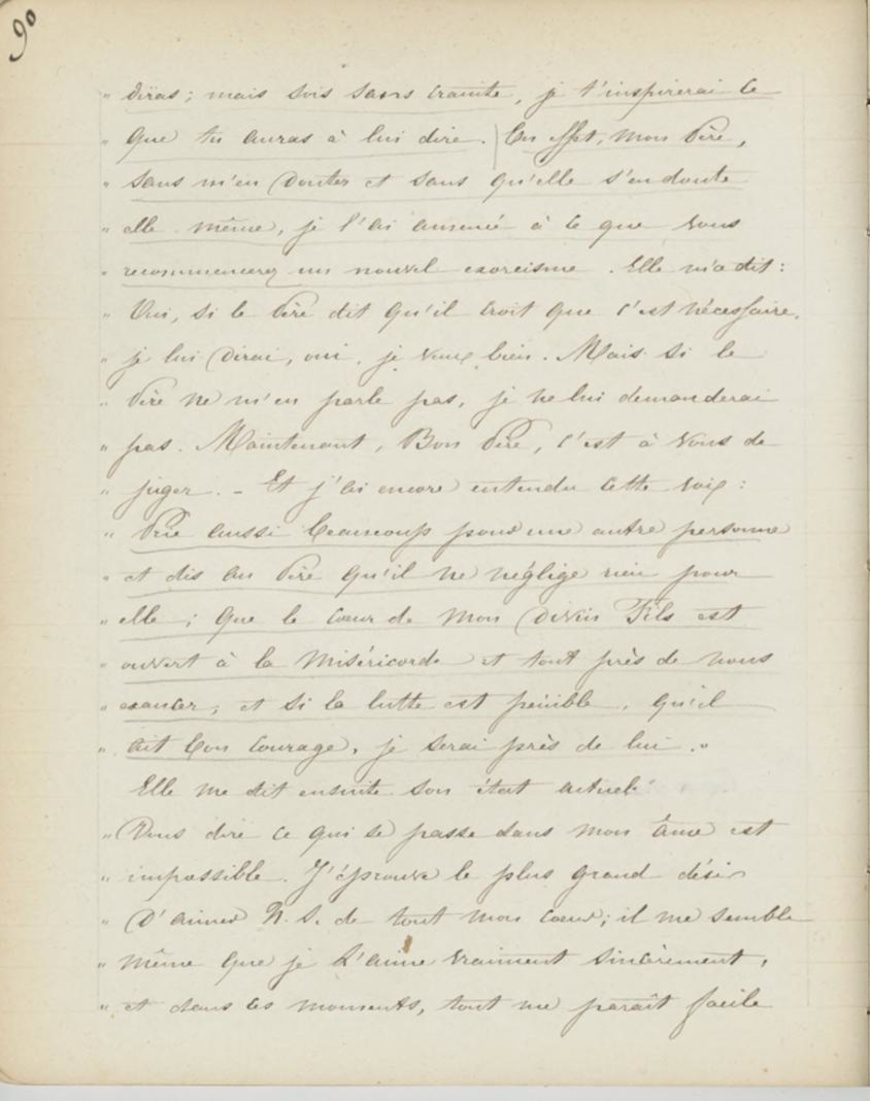 90
" diras ; mais sois sans crainte, je t'inspirerai ce
" que tu auras à lui dire. | En effet, mon Père,
" sans m'en douter et sans qu'elle s'en doute
" elle même, je l'ai amenée à ce que vous
" recommenciez un nouvel exorcisme. Elle m'a dit :
" Oui, si le Père dit qu'il croit que c'est nécessaire,
" je lui dirai, oui, je veux bien. Mais si le
" Père ne m'en parle pas, je ne lui demanderai
" pas. Maintenant, Bon Père, c'est à vous de
" juger. - Et j'ai encore entendu cette voix :
" Prie aussi beaucoup pour une autre personne
" et dis au Père qu'il ne néglige rien pour
" elle ; que le cœur de mon divin Fils est
" ouvert à la miséricorde et tout près de nous
" exaucer ; et si la lutte est pénible, qu'il
" ait bon courage, je serai près de lui."
Elle me dit ensuite son état actuel :
" Vous dire ce qui se passe dans mon âme est
" impossible. J'éprouve le plus grand désir
" d'aimer N. S. de tout mon cœur ; il me semble
" même que je L'aime vraiment sincèrement,
" et dans ces moments, tout me paraît facile